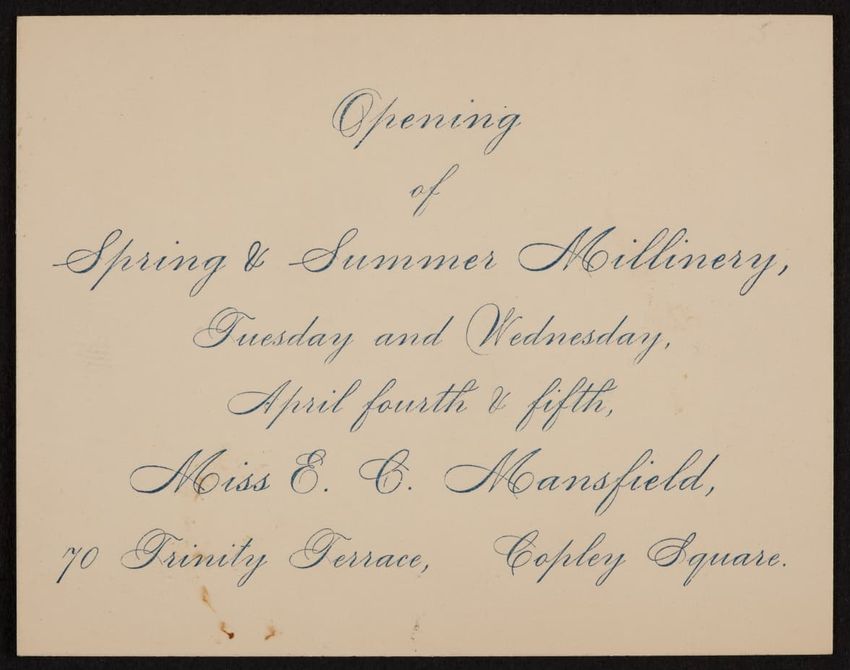 Opening
of
Spring & Summer Millinery,
Tuesday and Wednesday,
April fourth & fifth,
Miss E. C. Mansfield,
70 Trinity Terrace, Copley Square.